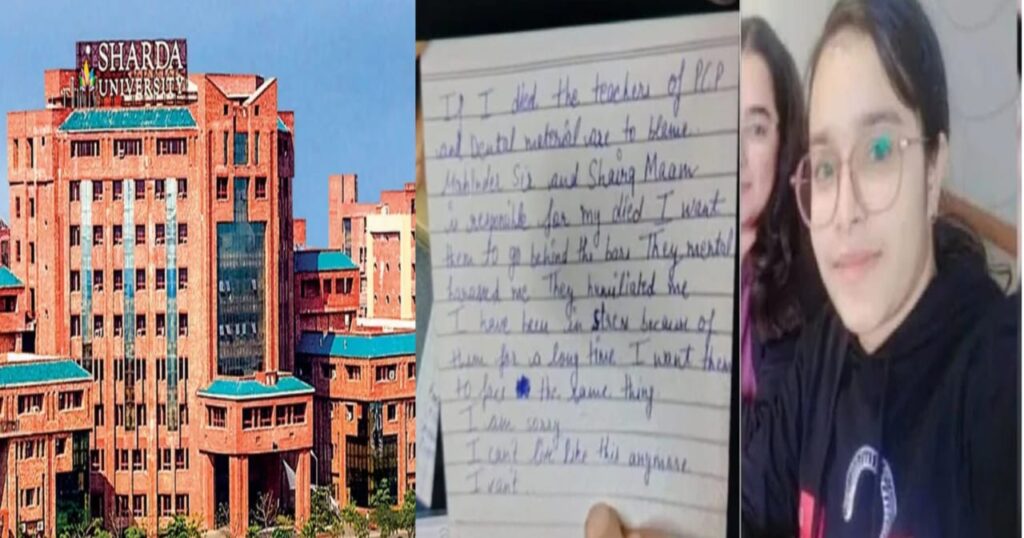 SHARDA
UNIVERSITY
If I died the teachers of PCP
and Dental material are to blame.
Mahinder Sir and Shairg Maam
is responsible for my died I want
them to go behind the bars They mental
harassed me They humiliated me
I have been in stress because of
them for a long time I want them
to face the same thing
I am sorry
I can't live like this anymore
I cant..